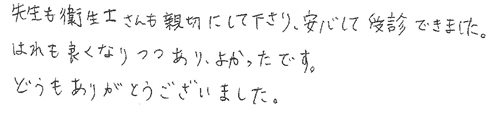 先生も衛生士さんも親切にして下さり、安心して受診できました。
はれも良くなりつつあり、よかったです。
どうもありがとうございました。